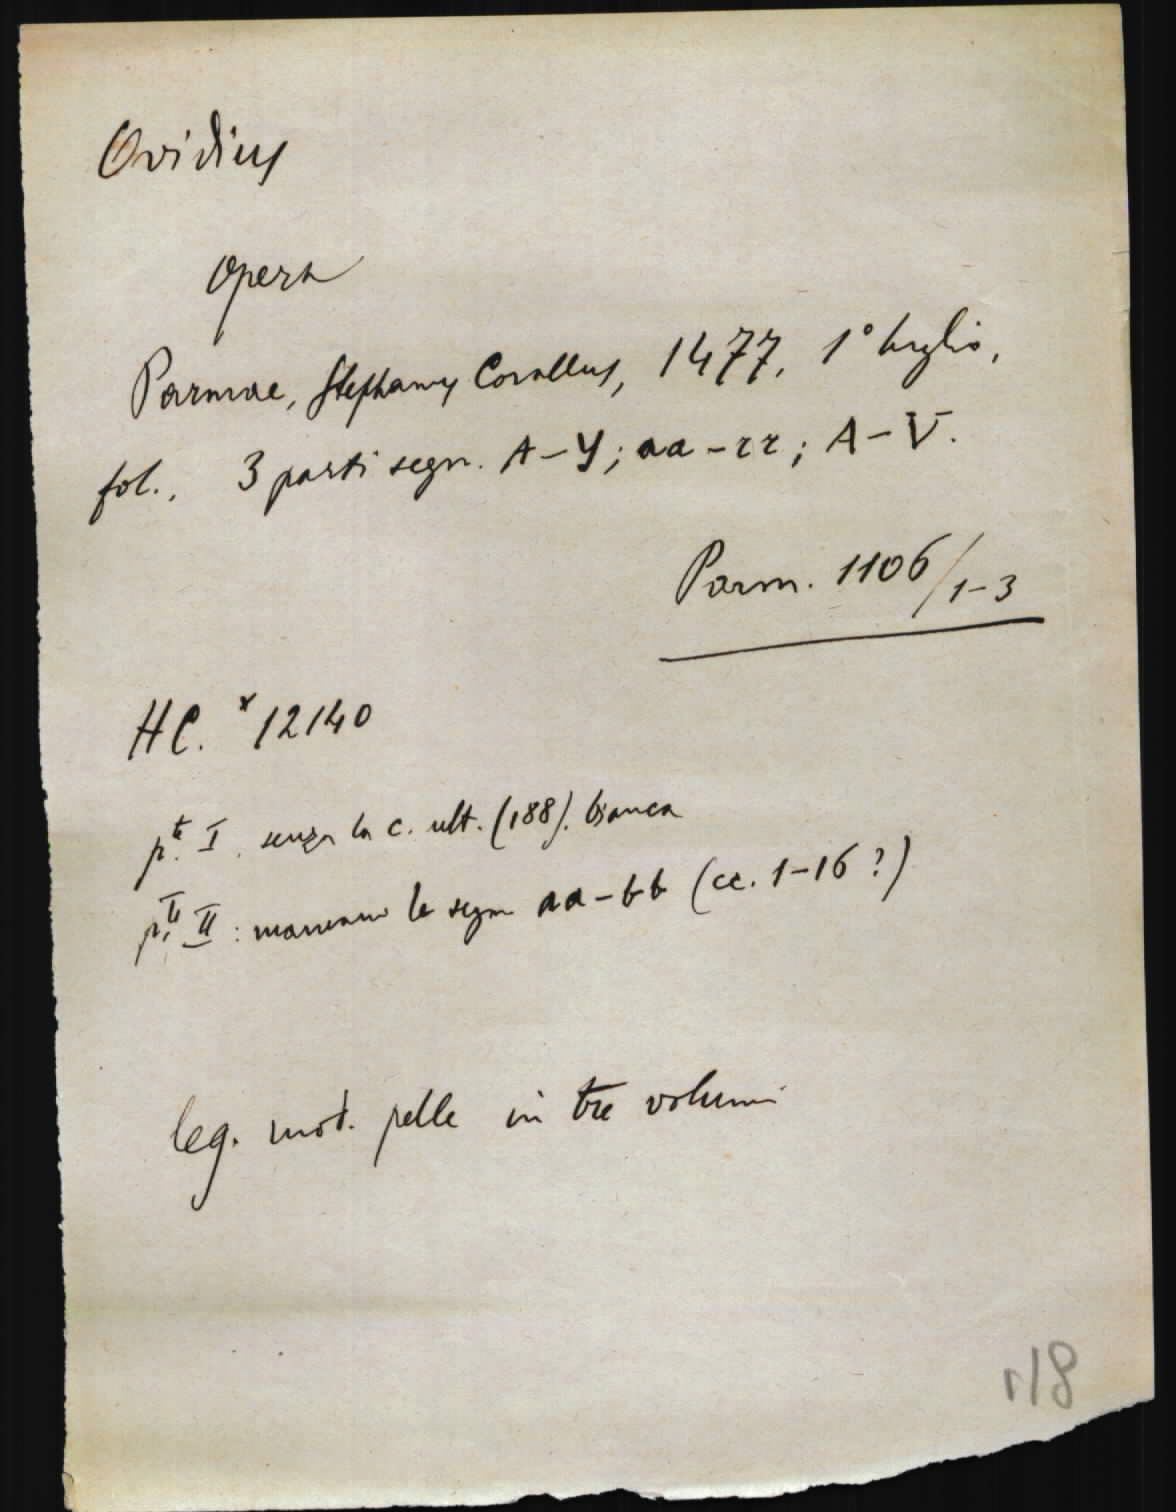 Ovidius
Opera
Parmae, Stephanus Corallus, 1477, 1° luglio,
fol., 3 parti segn. A-Y; aa-rr; A-V.
Parm. 1106/1-3
HC. *12140
p.te I. senza la c. ult. (188). bianca
p.te II: mancano le segn aa-bb (cc. 1-16?)
leg. mod. pelle in tre volumi